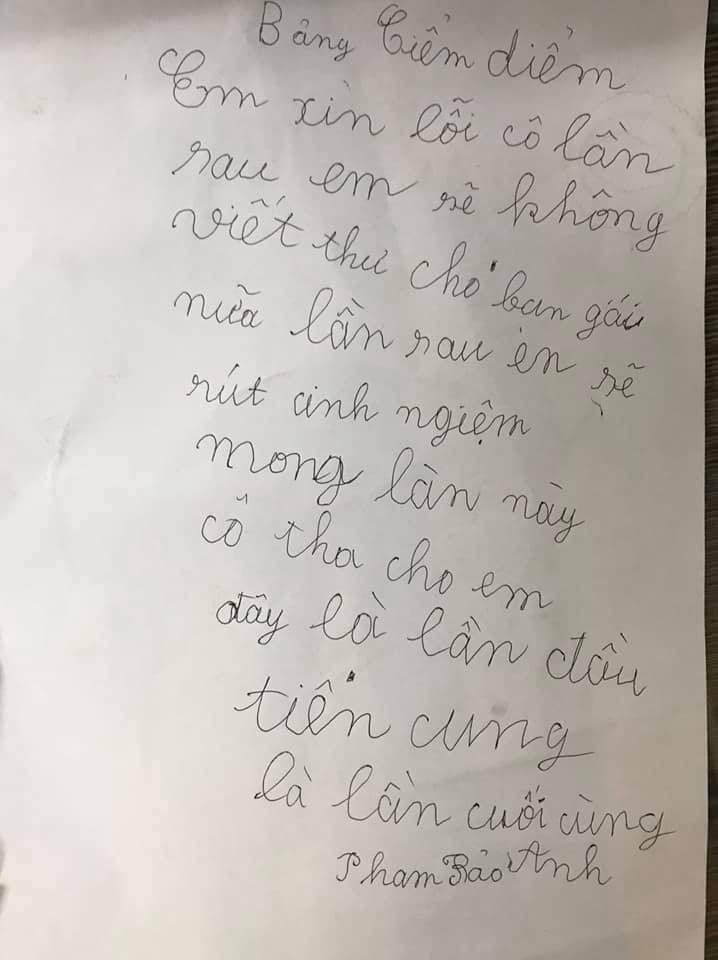 Bảng Ciểm diểm
Em xin lỗi cô lần
rau em sẽ không
viết thư cho ban gái
nữa lần rau en sẽ
rút cinh ngiệm
mong lần này
cô tha cho em
đây là lần đầu
tiển cung
là lần cuối cùng
Pham Bảo Anh